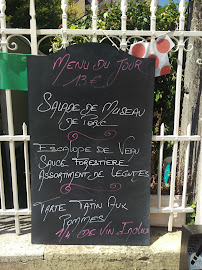 MENU DU JOUR
13€
SALADE DE MUSEAU
DE PORC
ESCALOPE DE VEAU
SAUCE FORESTIERE
ASSORTIMENT DE LEGUMES
TARTE TATIN AUX
POMMES
1/4 DE VIN INCLUS